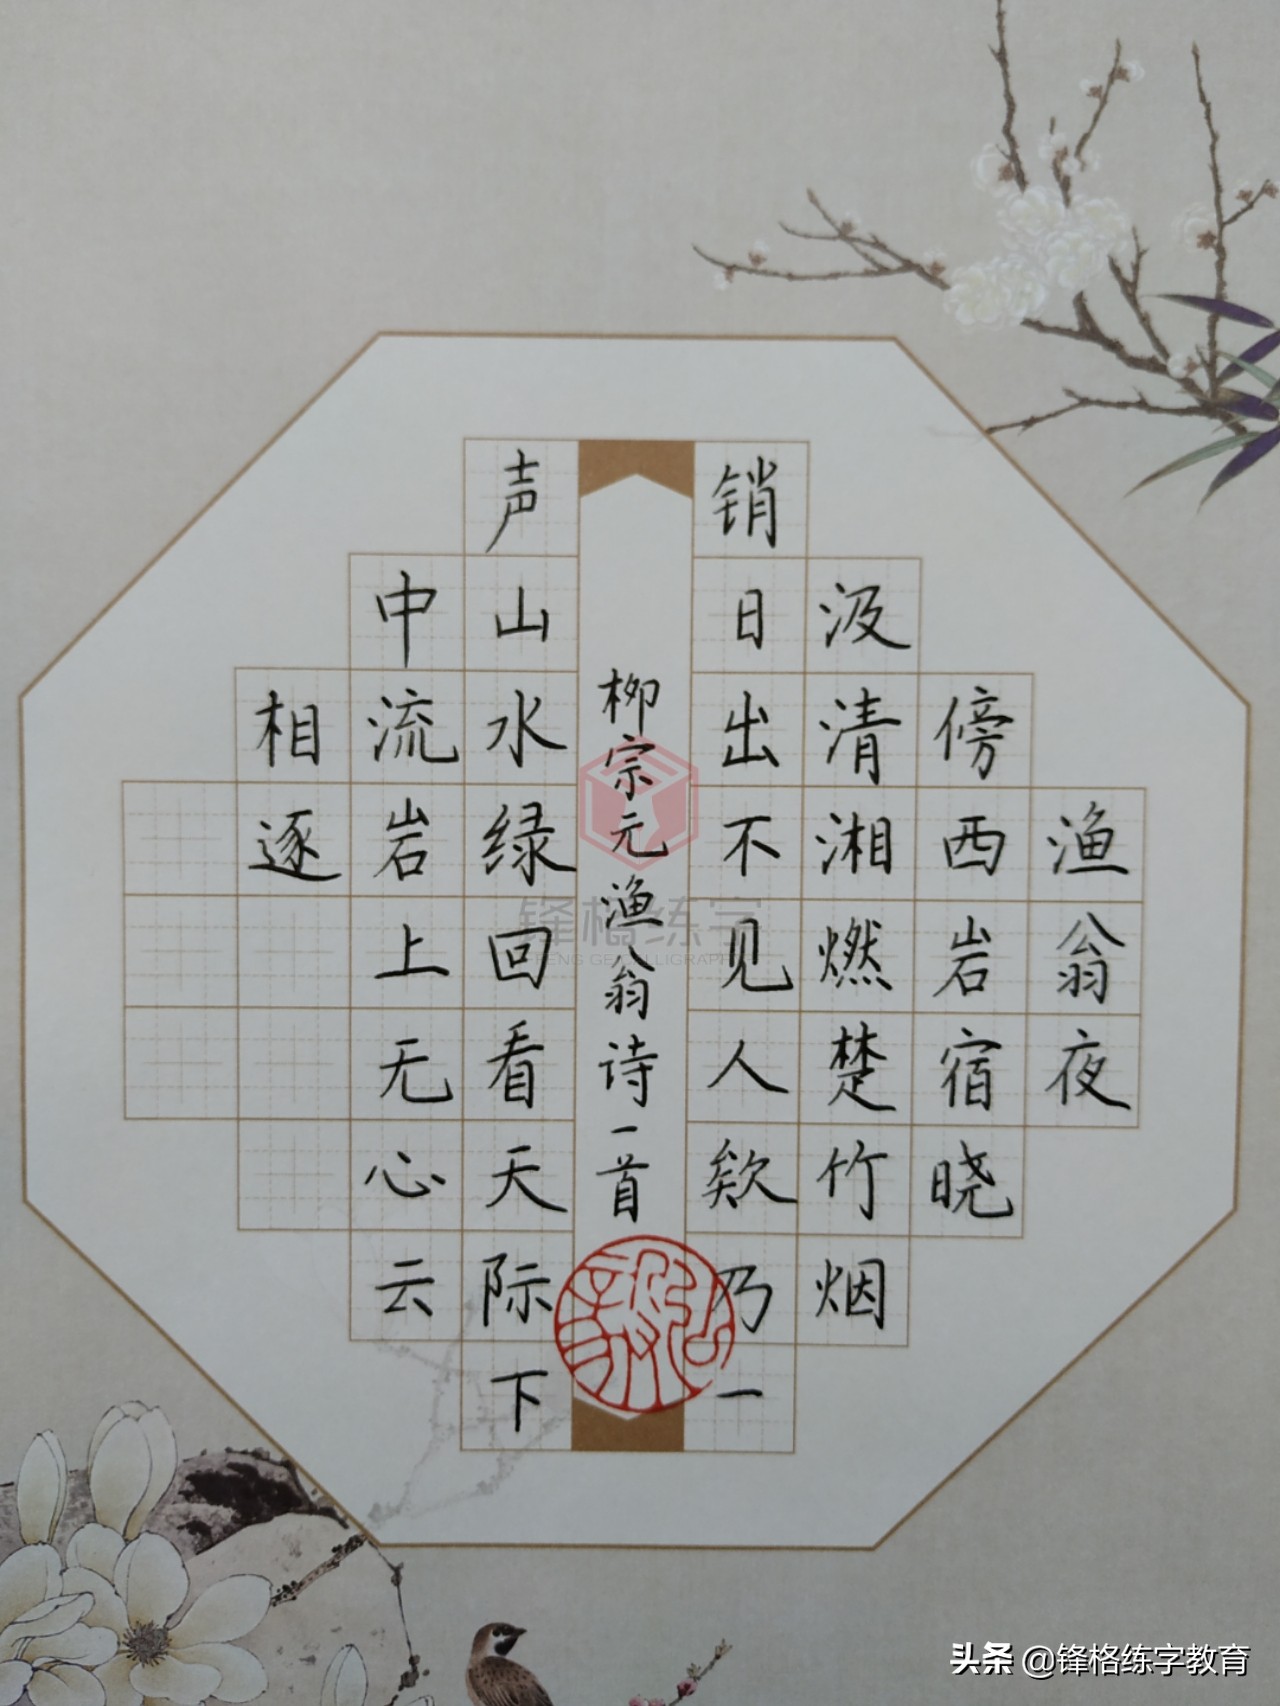 渔翁夜
傍西岩宿晓
汲清湘燃楚竹烟
销日出不见人欸乃一
柳宗元渔翁诗一首
声山水绿回看天际下
中流岩上无心云
相逐
锋格练字
头条 @锋格练字教育